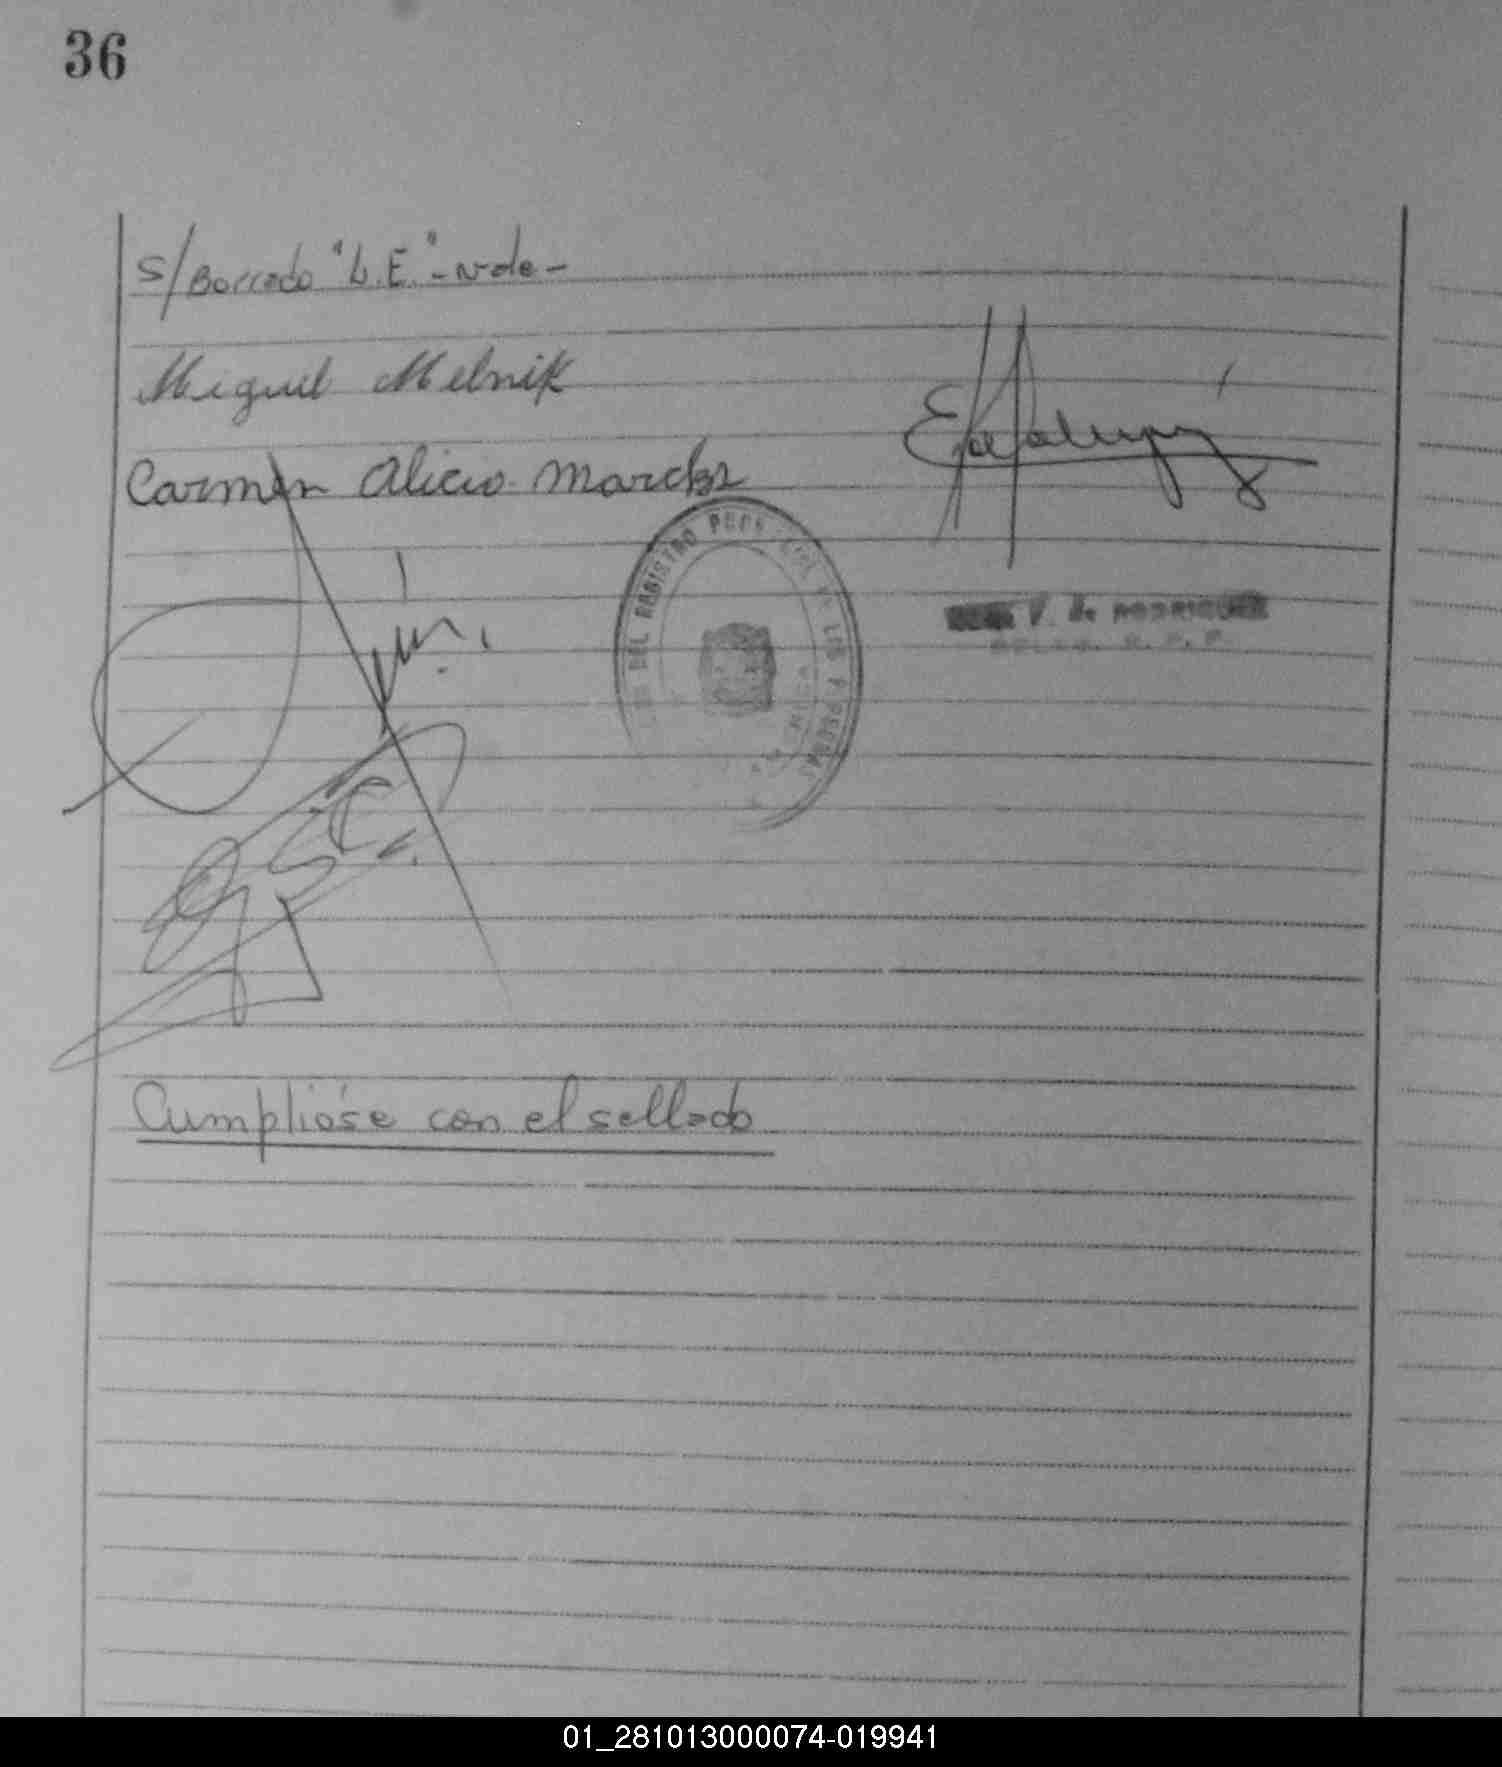 36
S/Borrado "L.E." - vale -
Miguel Melnik
Carmen Alicia
DEL REGISTRO DE LAS PERSONAS
V. de RODRIGUEZ
Cumplióse con el sellado
01_281013000074-019941